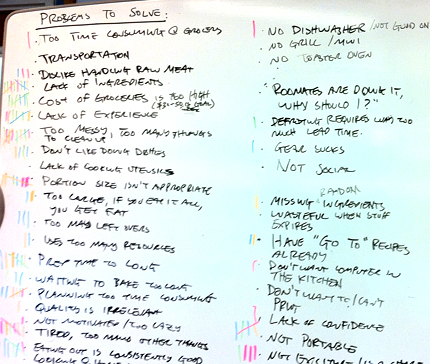 PROBLEMS TO SOLVE:
TOO TIME CONSUMING @ GROCERS
TRANSPORTATION
DISLIKE HANDLING RAW MEAT
LACK OF INGREDIENTS
COST OF GROCERIES IS TOO HIGH
LACK OF EXPERIENCE
TOO MESSY, TOO MANY THINGS
TO CLEAN UP
DON'T LIKE DOING DISHES
LACK OF COOKING UTENSILS
PORTION SIZE ISN'T APPROPRIATE
TOO LARGE, IF YOU EAT IT ALL,
YOU GET FAT
TOO MANY LEFTOVERS
USES TOO MANY RESOURCES
PREP TIME TO LONG
WAITING TO BAKE TOO LONG
PLANNING TOO TIME CONSUMING
QUALITY IS IRRELEVANT
NOT MOTIVATED / TOO LAZY
TIRED, TOO MANY OTHER THINGS
EATING OUT IS CONSISTENTLY GOOD
NO DISHWASHER / NOT GOOD ONE
NO GRILL /
NO TOASTER OVEN
"ROOMATES ARE DOING IT,
WHY SHOULD I?"
DEFROSTING REQUIRES WAY TOO
MUCH LEAD TIME.
GEAR SUCKS
NOT SOCIAL
RANDOM
MISSING INGREDIENTS
WASTEFUL WHEN STUFF
EXPIRES
HAVE "GO TO" RECIPES
ALREADY
DON'T WANT COMPUTER IN
THE KITCHEN
DON'T WANT TO / CAN'T
PRINT
LACK OF CONFIDENCE
NOT PORTABLE
NOT